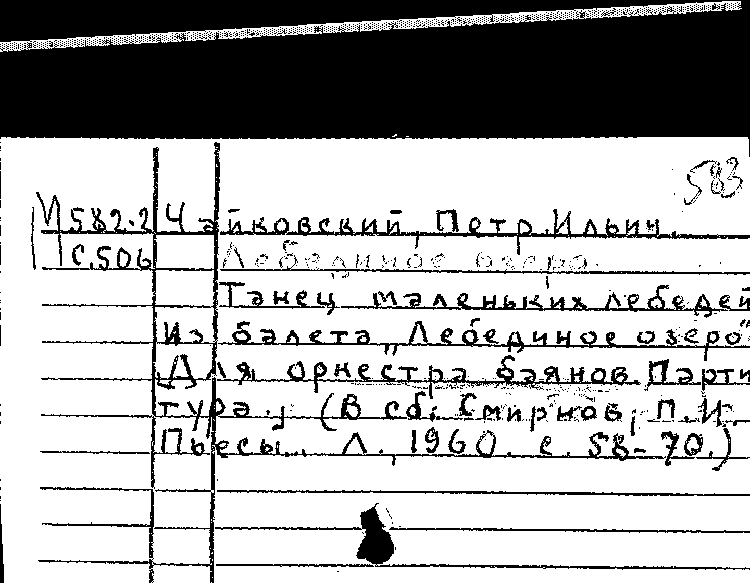 583
И582.2 Чайковский, Петр Ильич.
С.506 Лебединое озеро.
Танец маленьких лебедей
Из балета „Лебединое озеро"
Для оркестра баянов. Парти
тура., (В сб: Смирнов, П.И.
Пьесы. Л., 1960. с. 58-70.)